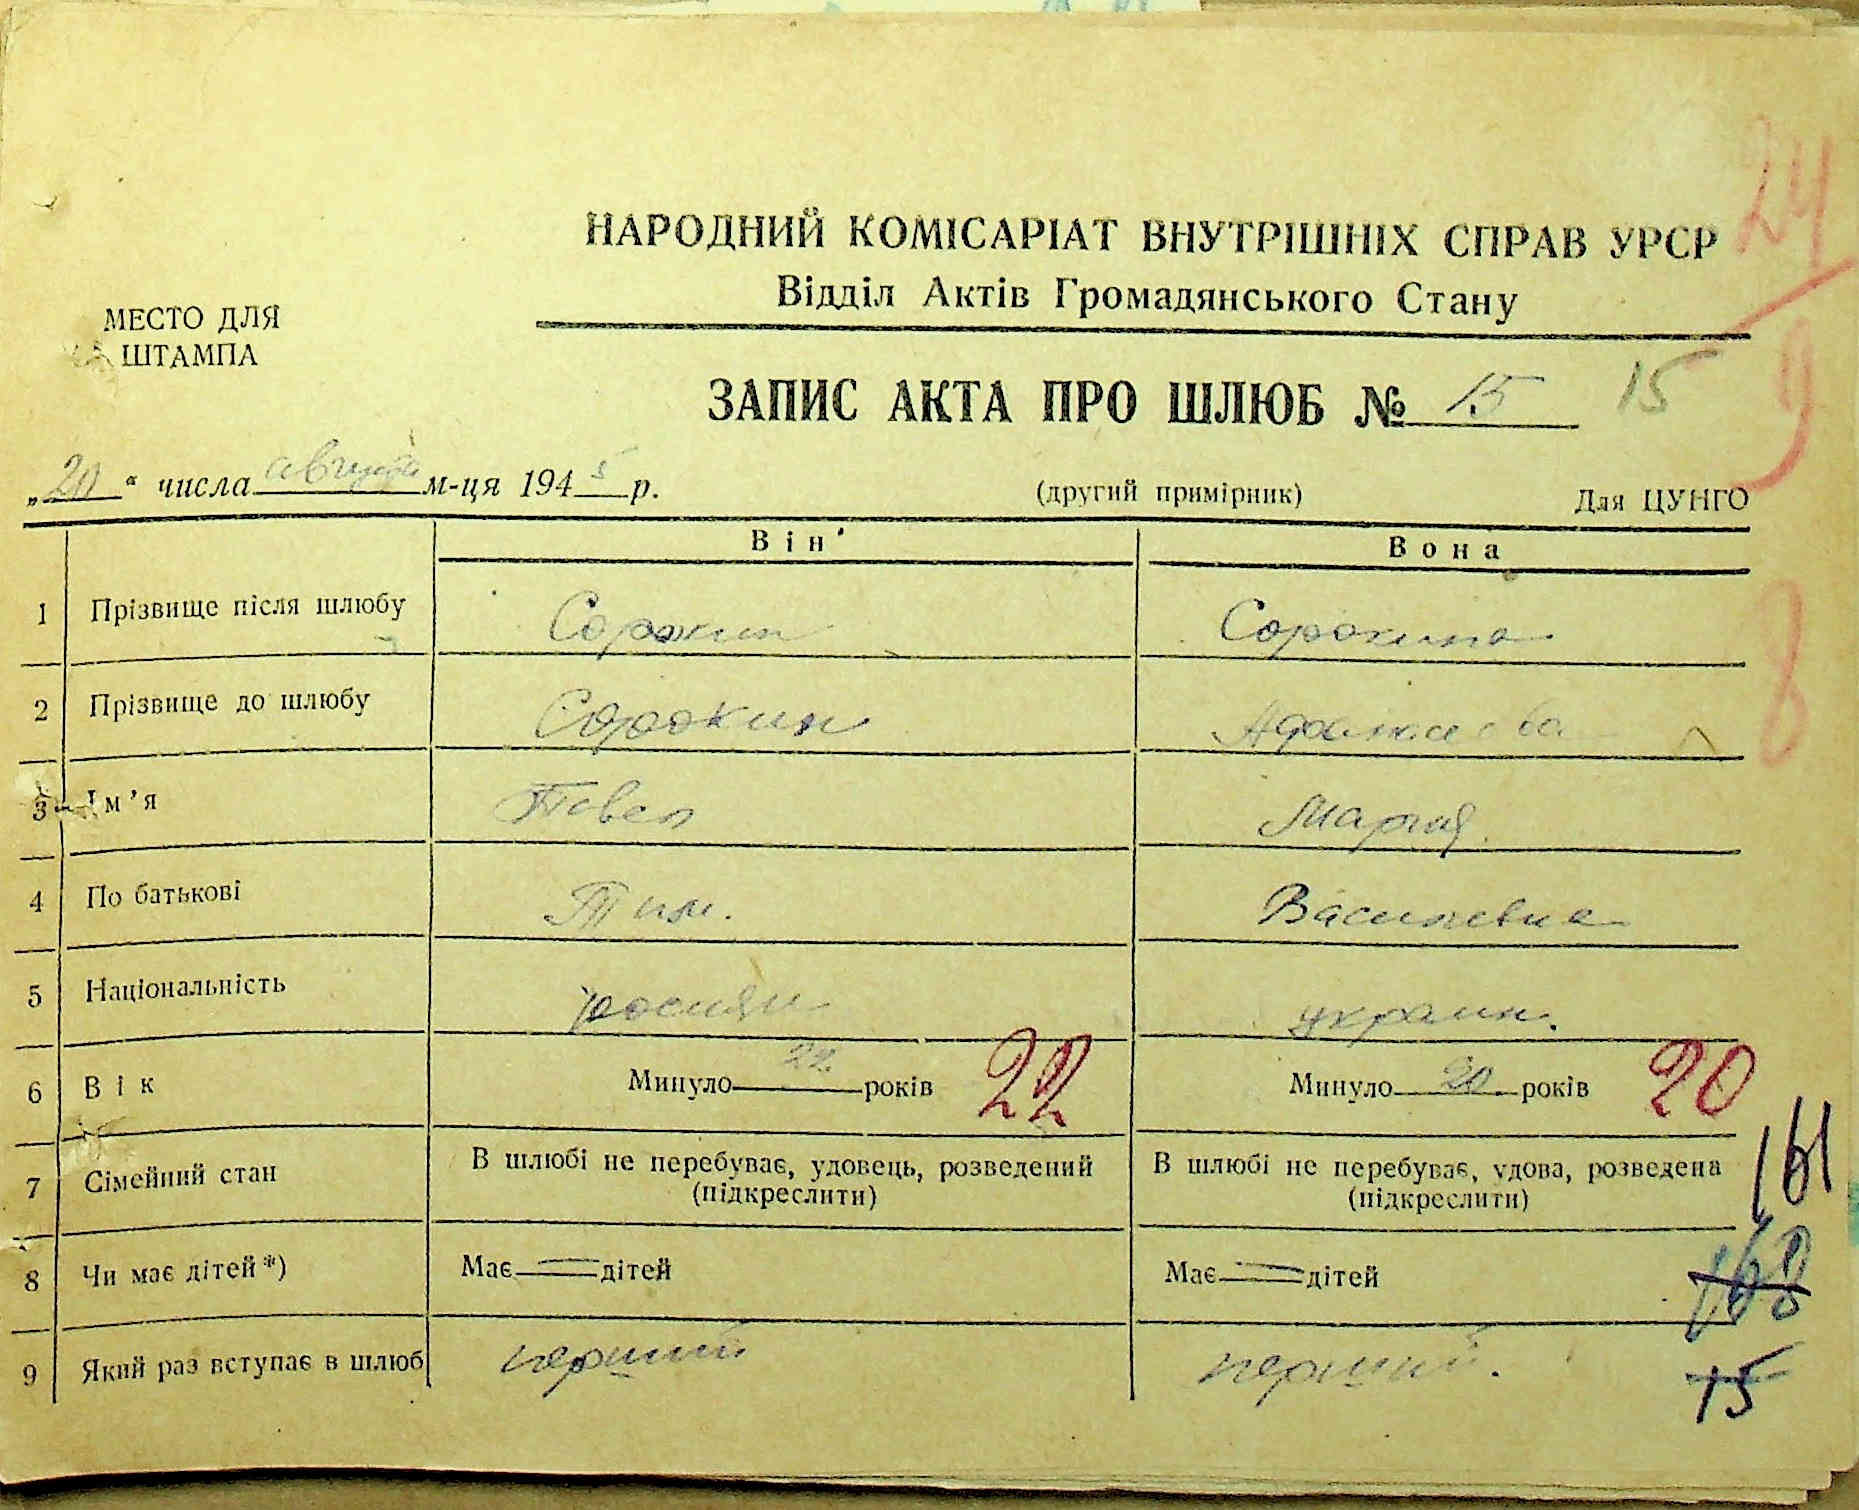 24
9
8
НАРОДНИЙ КОМІСАРІАТ ВНУТРІШНІХ СПРАВ УРСР
Відділ Актів Громадянського Стану
МЕСТО ДЛЯ
ШТАМПА
ЗАПИС АКТА ПРО ШЛЮБ № 15 15
„20“ числа августа м-ця 1945 р. (другий примірник) Для ЦУНГО
Він Вона
1 Прізвище після шлюбу Сорокин Сорокина
2 Прізвище до шлюбу Сорокин
3 Ім’я Павел Мария
4 По батькові Тим. Васильевна
5 Національність росиян украин.
6 Вік Минуло 22 років 22 Минуло 20 років 20
7 Сімейний стан В шлюбі не перебуває, удовець, розведений (підкреслити) В шлюбі не перебуває, удова, розведена (підкреслити)
161
8 Чи має дітей *) Має — дітей Має — дітей
168
9 Який раз вступає в шлюб перший перший.
15